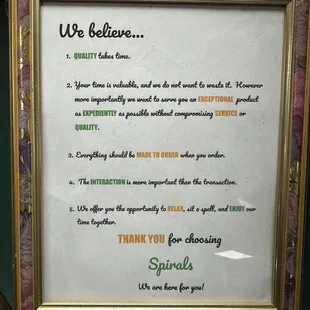 We believe...
1. QUALITY takes time.
2. Your time is valuable, and we do not want to waste it. However
more importantly we want to serve you an EXCEPTIONAL product
as EXPEDIENTLY as possible without compromising SERVICE or
QUALITY.
3. Everything should be MADE TO ORDER when you order.
4. The INTERACTION is more important than the transaction.
5. We offer you the opportunity to RELAX, sit a spell, and ENJOY our
time together.
THANK YOU for choosing
Spirals
We are here for you!